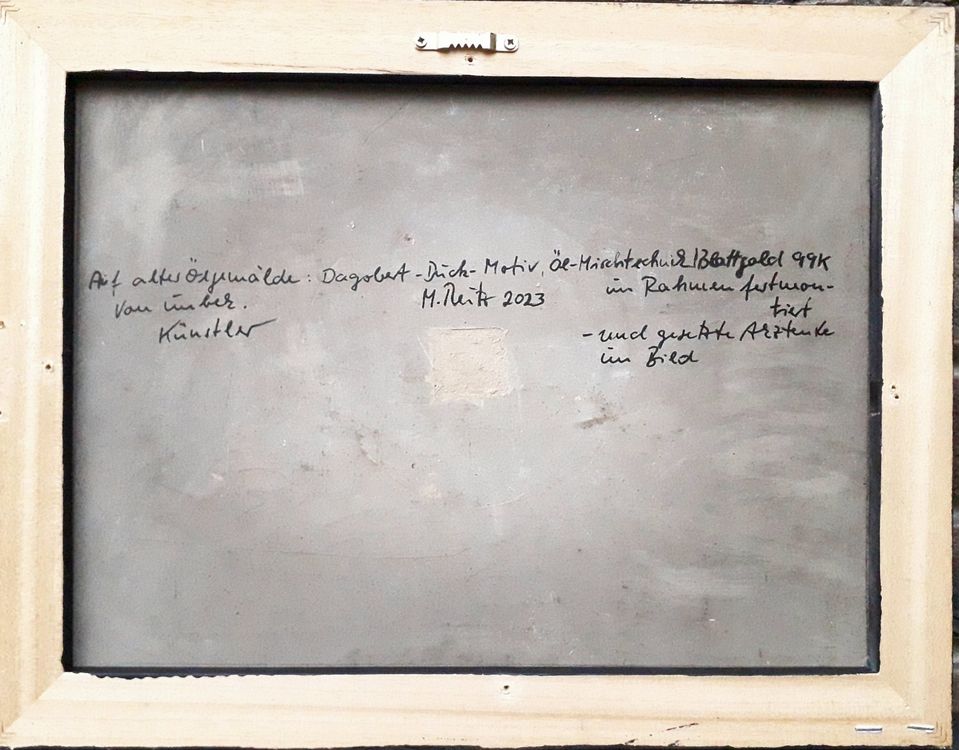 Auf alter Ölgemälde: Dagobert-Duck-Motiv, Öl-Mischtechnik/Blattgold 99K
von unbek. M. Reitz 2023 im Rahmen festmon-
tiert
Künstler - und gesetzte
im Bild